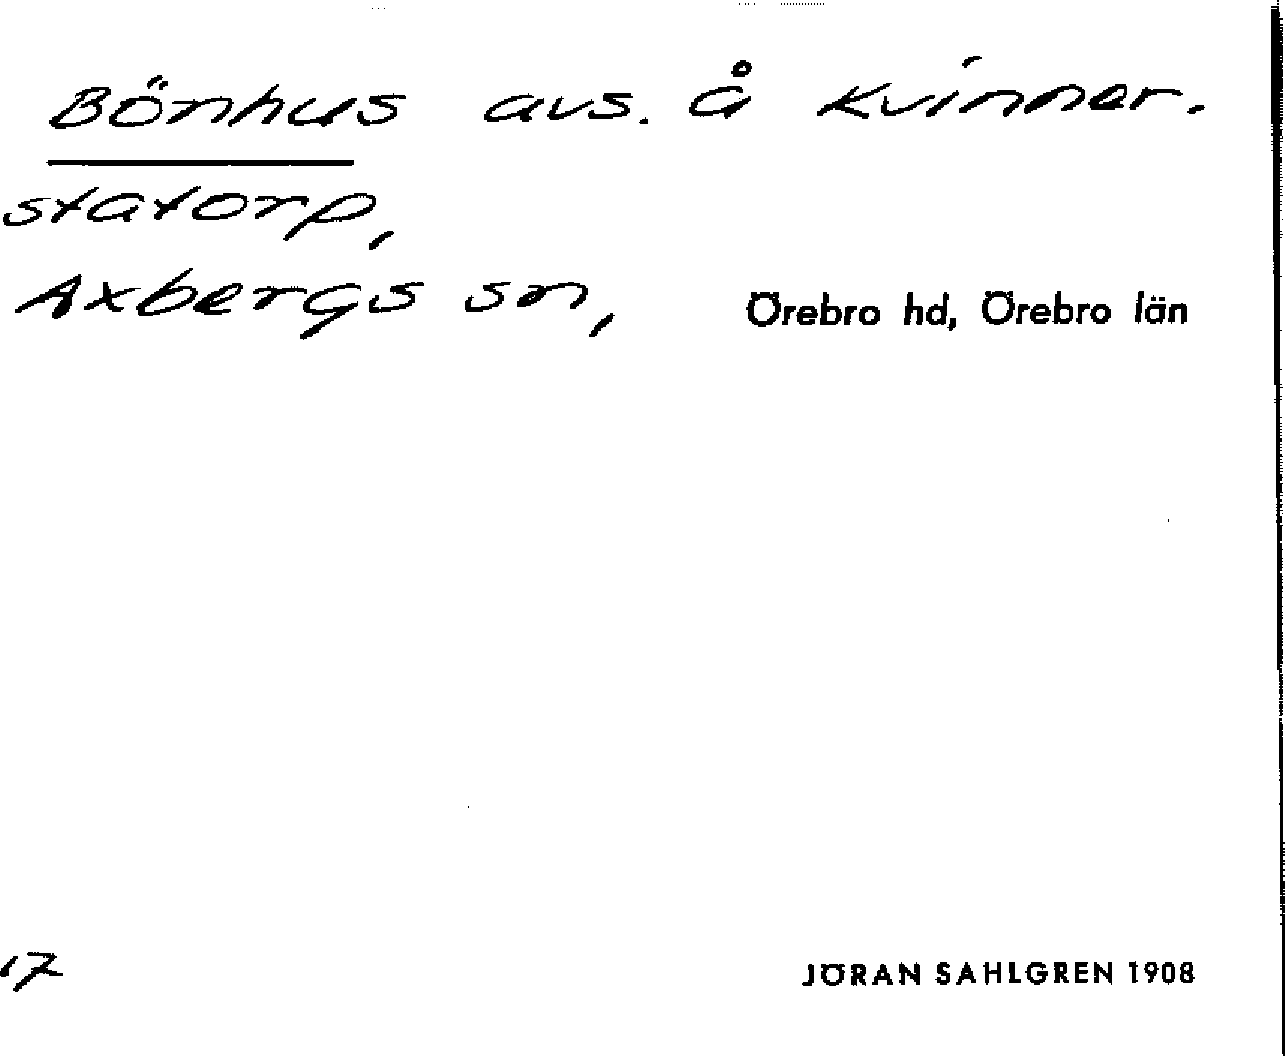 Bönhus avs. å Kvinner.
statorp,
Axbergs sn, Örebro hd, Örebro län
17
JÖRAN SAHLGREN 1908